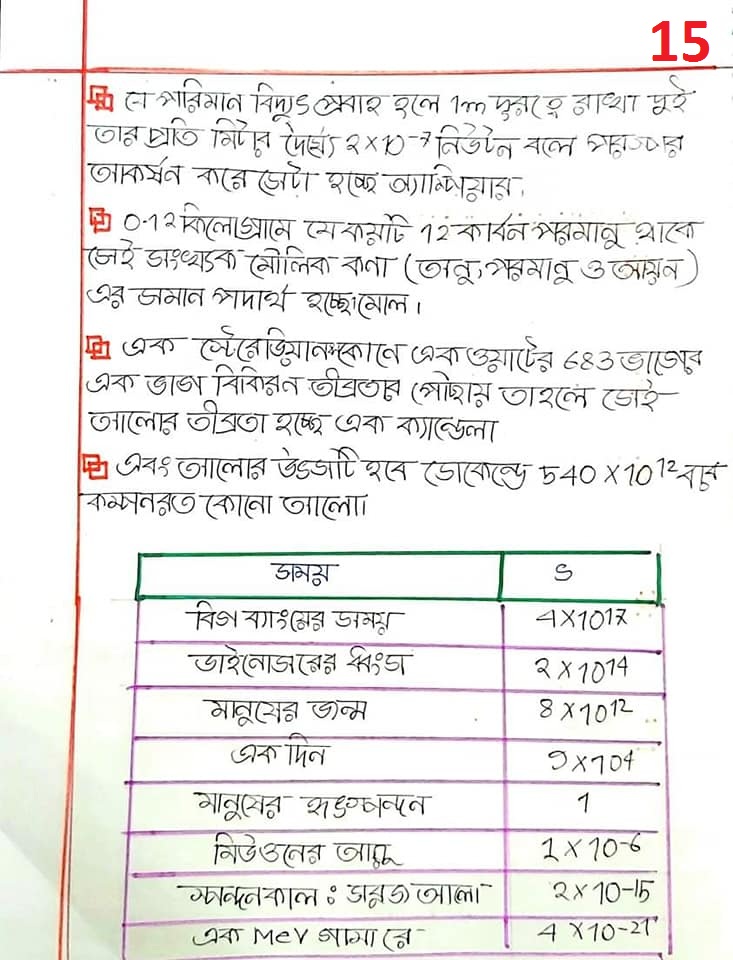 15
যে পরিমান বিদ্যুৎ প্রবাহ হলে 1m দুরত্বে রাখা দুই
তার প্রতি মিটার দৈর্ঘ্যে 2×10⁻⁷ নিউটন বলে পরস্পর
আকর্সন করে সেটা হচ্ছে অ্যাম্পিয়ার।
0.12 কিলোগ্রামে যে কয়টি 12 কার্বন পরমানু থাকে
সেই সংখ্যক মৌলিক কনা (অনু, পরমানু ও আয়ন)
এর সমান পদার্থ হচ্ছে মোল।
এক স্টেরেডিয়ান কোনে এক ওয়াটের 683 ভাগের
এক ভাগ বিকিরন তীব্রতার পৌছায় তাহলে সেই
আলোর তীব্রতা হচ্ছে এক ক্যান্ডেলা
এবং আলোর উৎসটি হবে সেকেন্ডে 540 × 10¹² বার
কম্পনরত কোনো আলো।
সময় S
বিগ ব্যাংয়ের সময় 4×10¹⁷
ডাইনোসরের ধ্বংস 2 × 10¹⁴
মানুষের জন্ম 8 × 10¹²
এক দিন 9 × 10⁴
মানুষের হৃৎস্পন্দন 1
মিউওনের আয়ু 2 × 10⁻⁶
স্পন্দনকাল : সবুজ আলো 2 × 10⁻¹⁵
এক MeV গামা রে 4 × 10⁻²¹